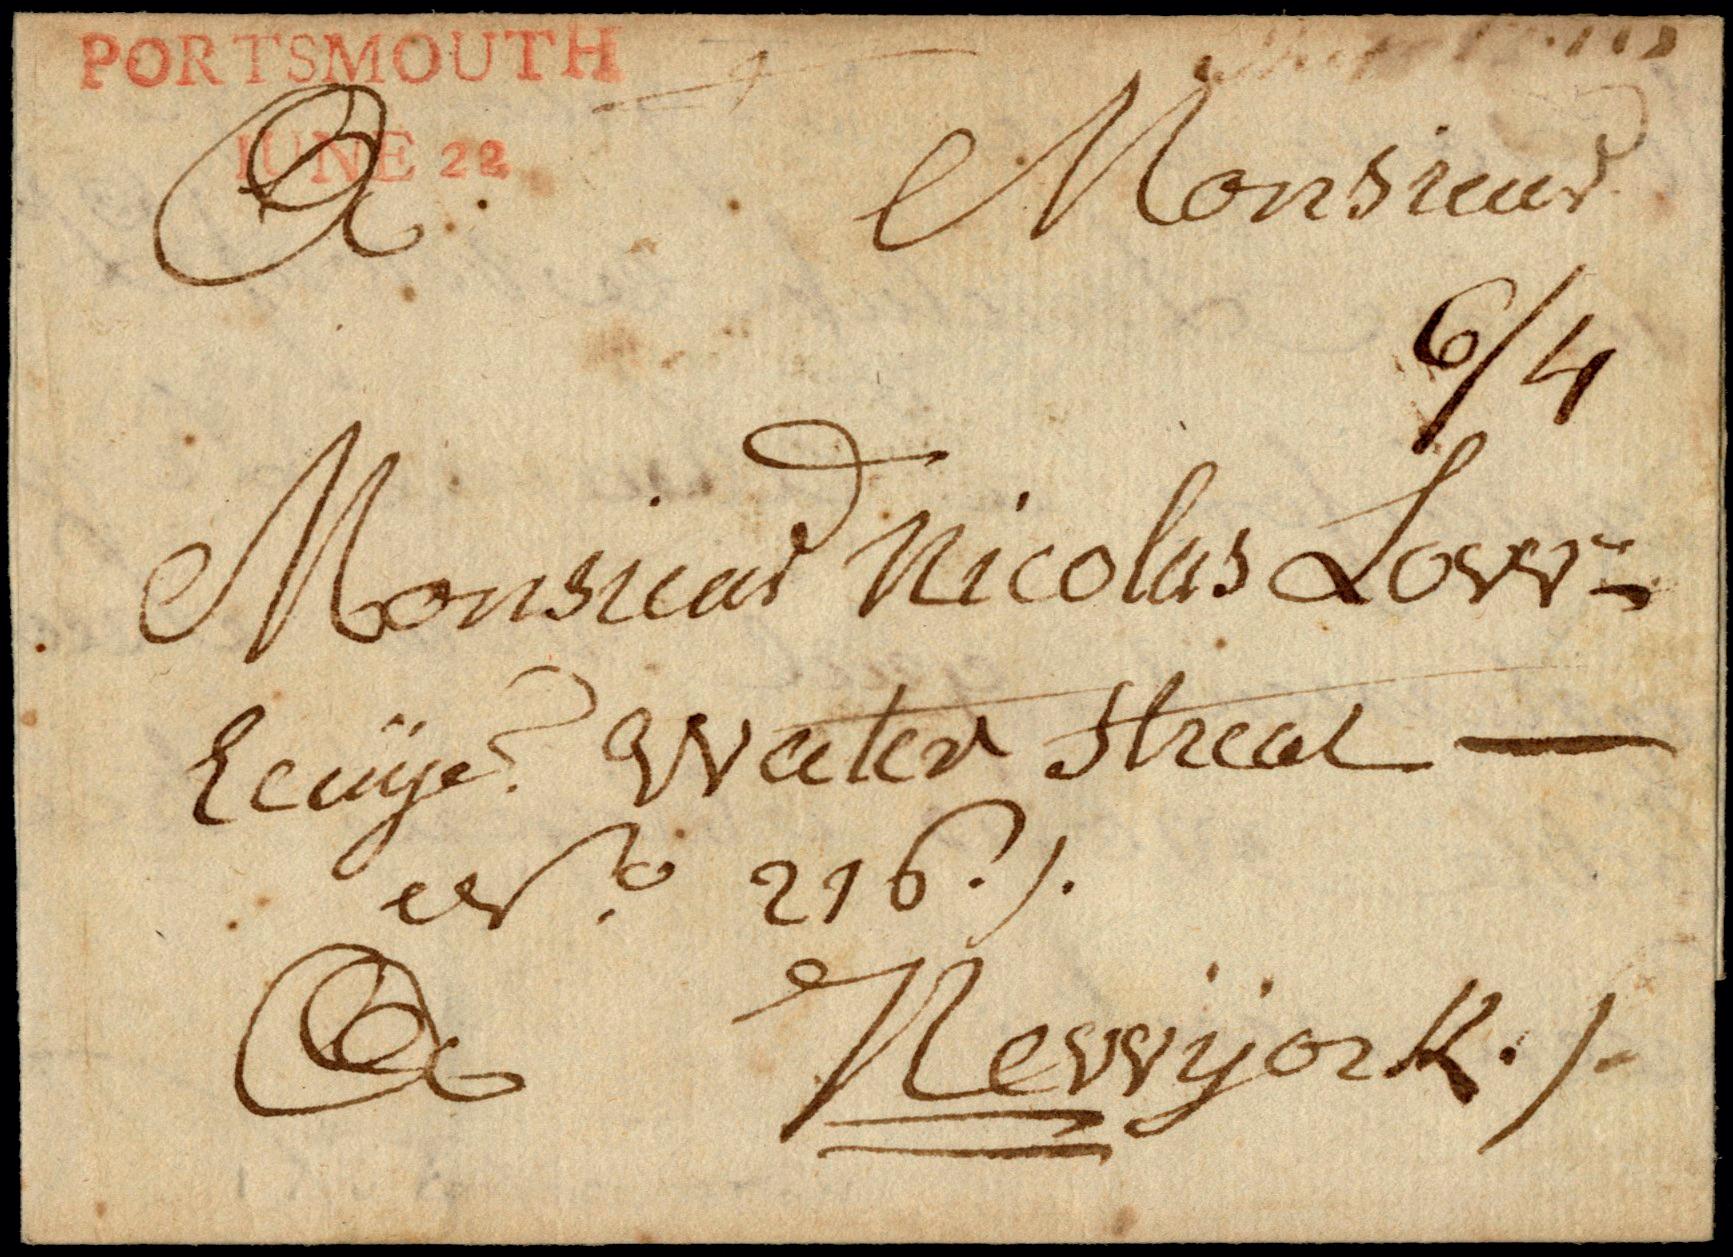 PORTSMOUTH
IUNE 22
A Monsieur
6/4
Monsieur Nicolas Low
Ecuÿer Water Street
N.o 216 ./.
A Newyork ./.